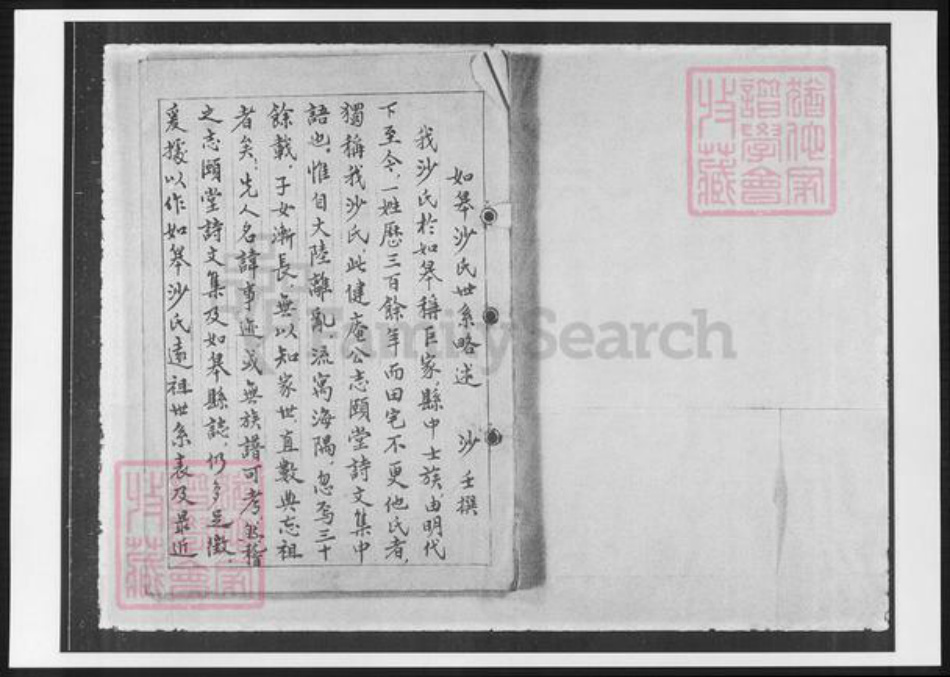 如皋沙氏世系略述　沙壬撰
我沙氏於如皋稱巨家，縣中士族，由明代
下至今，一姓歷三百餘年而田宅不更他氏者，
獨稱我沙氏，此健庵公志頤堂詩文集中
語也，惟自大陸離亂，流寓海隅，忽焉三十
餘載，子女漸長，無以知家世，直數典忘祖
者矣，先人名諱事迹或無族譜可考，然稽
之志頤堂詩文集及如皋縣誌，仍多足徵，
爰據以作如皋沙氏遠祖世系表及最近
猶他家
譜學會
收藏
FamilySearch
猶他家
譜學會
收藏